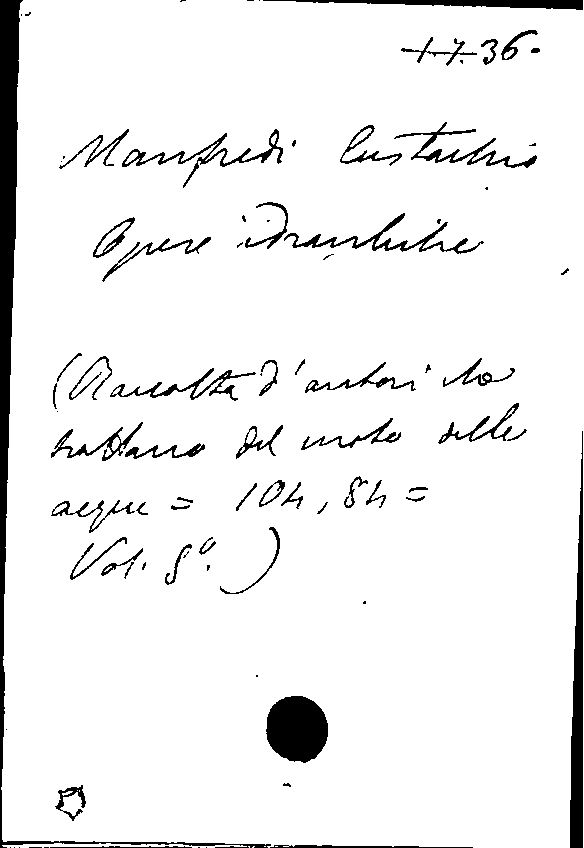 1.7.36.
Manfredi Eustachio
Opere idrauliche
(Raccolta d'autori che
trattano del moto delle
acque = 104, 84 =
Vol. 8º.)